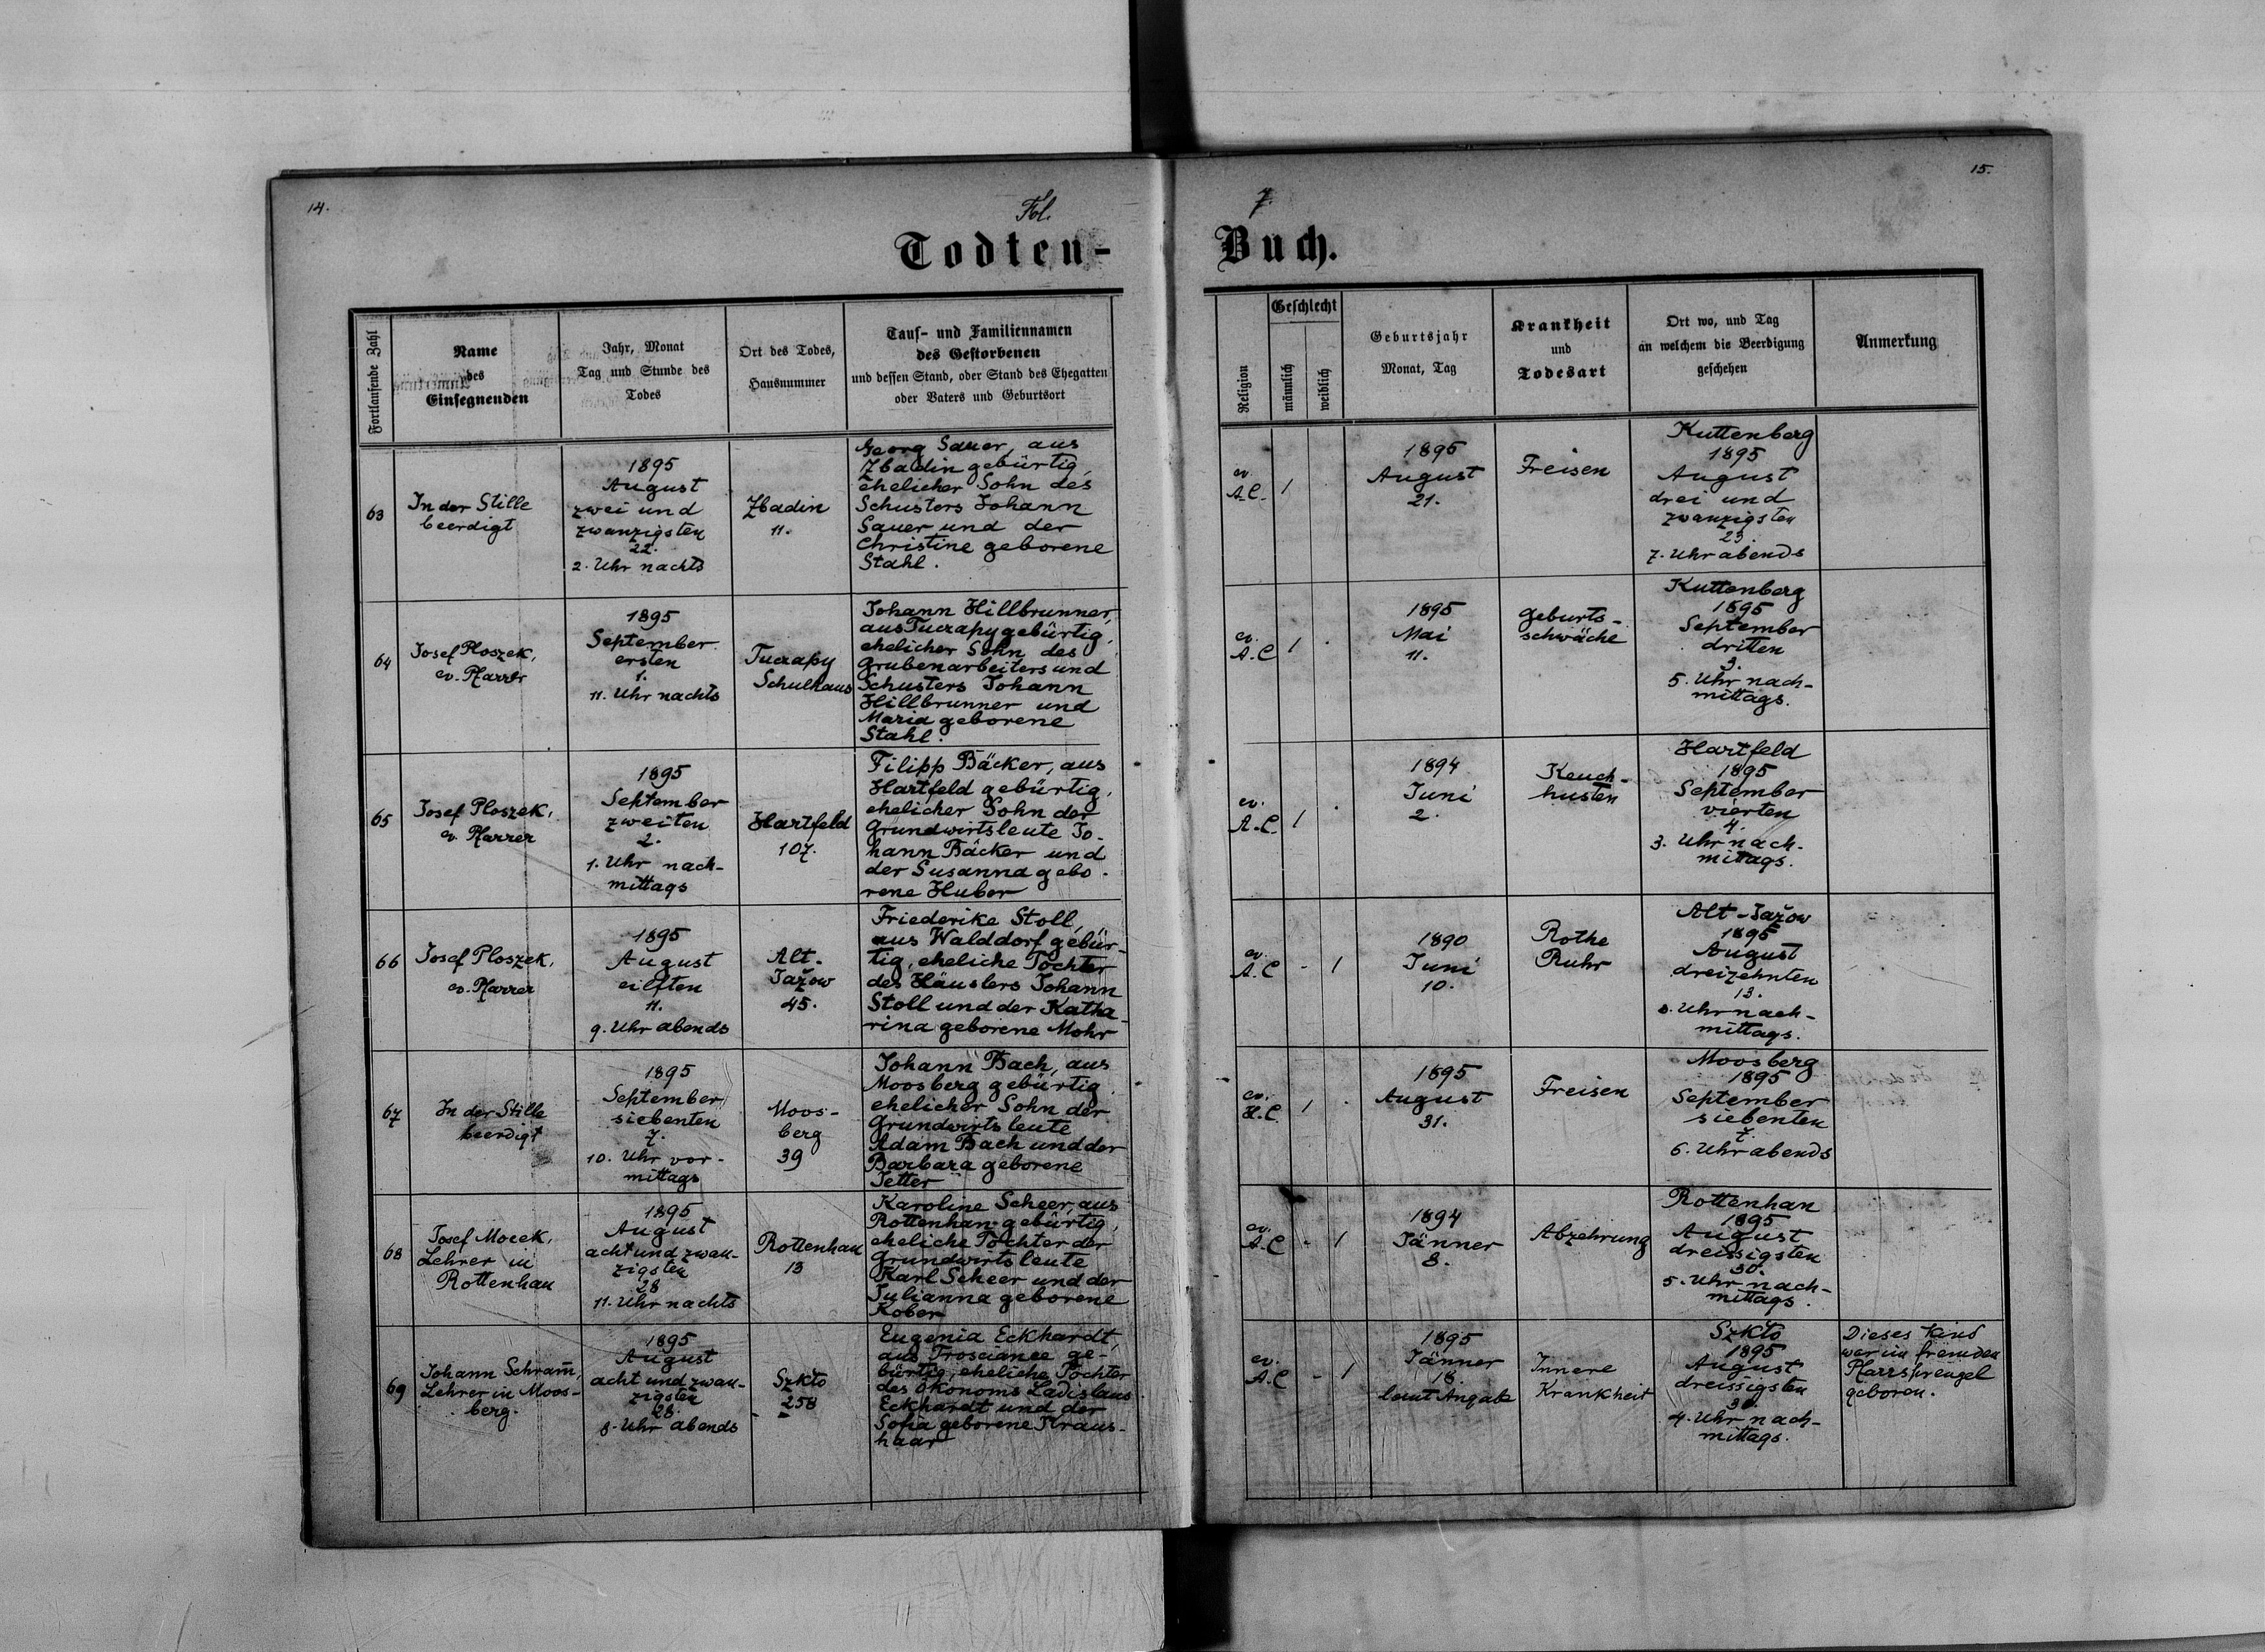 14.
Fol.
7.
15.
Todten-
Buch.
Fortlaufende Zahl
Name
des
Einsegnenden
Jahr, Monat
Tag und Stunde des
Todes
Ort des Todes,
Hausnummer
Tauf- und Familiennamen
des Gestorbenen
und dessen Stand, oder Stand des Ehegatten
oder Vaters und Geburtsort
Religion
Geschlecht
männlich
weiblich
Geburtsjahr
Monat, Tag
Krankheit
und
Todesart
Ort wo, und Tag
an welchem die Beerdigung
geschehen
Anmerkung
63
In der Stille
beerdigt
1895
August
zwei und
zwanzigsten
22.
2. Uhr nachts
Zbadin
11.
Georg Sauer, aus
Zbadin gebürtig,
ehelicher Sohn des
Schusters Johann
Sauer und der
Christine geborene
Stahl.
ev.
A.C.
1
1895
August
21.
Freisen
Kuttenberg
1895
August
drei und
zwanzigsten
23.
7. Uhr abends
64
Josef Ploszek,
ev. Pfarrer
1895
September
ersten
1.
11. Uhr nachts
Tucrapy
Schulhaus
Johann Hillbrunner,
aus Tucrapy gebürtig,
ehelicher Sohn des
Grubenarbeiters und
Schusters Johann
Hillbrunner und
Maria geborene
Stahl.
ev.
A.C
1 .
1895
Mai
11.
Geburts-
schwäche
Kuttenberg
1895
September
dritten
3.
5. Uhr nach-
mittags.
65
Josef Ploszek,
ev. Pfarrer
1895
September
zweiten
2.
1. Uhr nach-
mittags
Hartfeld
107.
Filipp Bäcker, aus
Hartfeld gebürtig,
ehelicher Sohn der
Grundwirtsleute Jo-
hann Bäcker und
der Susanna gebo-
rene Huber
ev.
A.C.
1 .
1894
Juni
2.
Keuch-
husten
Hartfeld
1895
September
vierten
4.
3. Uhr nach-
mittags.
66
Josef Ploszek,
ev. Pfarrer
1895
August
eilften
11.
9. Uhr abends
Alt-
Jažow
45.
Friederike Stoll,
aus Walddorf gebür-
tig, eheliche Tochter
des Häuslers Johann
Stoll und der Katha-
rina geborene Mohr
ev.
A.C
- 1
1890
Juni
10.
Rothe
Ruhr
Alt-Jažow
1895
August
dreizehnten
13.
Uhr nach-
mittags.
67
In der Stille
beerdigt
1895
September
siebenten
7.
10. Uhr vor-
mittags
Moos-
berg
39
Johann Bach, aus
Moosberg gebürtig
ehelicher Sohn der
Grundwirtsleute
Adam Bach und der
Barbara geborene
Jetter
ev.
H.C.
1 .
1895
August
31.
Freisen
Moosberg
1895
September
siebenten
7.
6. Uhr abends
68
Josef Mocek,
Lehrer in
Rottenhan
1895
August
acht und zwan-
zigsten
28
11. Uhr nachts
Rottenhan
13
Karoline Scheer, aus
Rottenhan gebürtig,
eheliche Tochter der
Grundwirtsleute
Karl Scheer und der
Julianna geborene
Kober
ev.
A.C
- 1
1894
Jänner
8.
Abzehrung
Rottenhan
1895
August
dreissigsten
30.
5. Uhr nach-
mittags.
69
Johann Schram̄,
Lehrer in Moos-
berg.
1895
August
acht und zwan-
zigsten
28.
8. Uhr abends
Szkło
258
Eugenia Eckhardt,
aus Troscianee ge-
bürtig, eheliche Tochter
des Ökonoms Ladislaus
Eckhardt und der
Sofia geborene Kraus-
haar
ev.
A.C
- 1
1895
Jänner
18.
laut Angabe
Innere
Krankheit
Szkło
1895
August
dreissigsten
30.
4. Uhr nach-
mittags.
Dieses Kind
war im fremden
Pfarrsprengel
geboren.